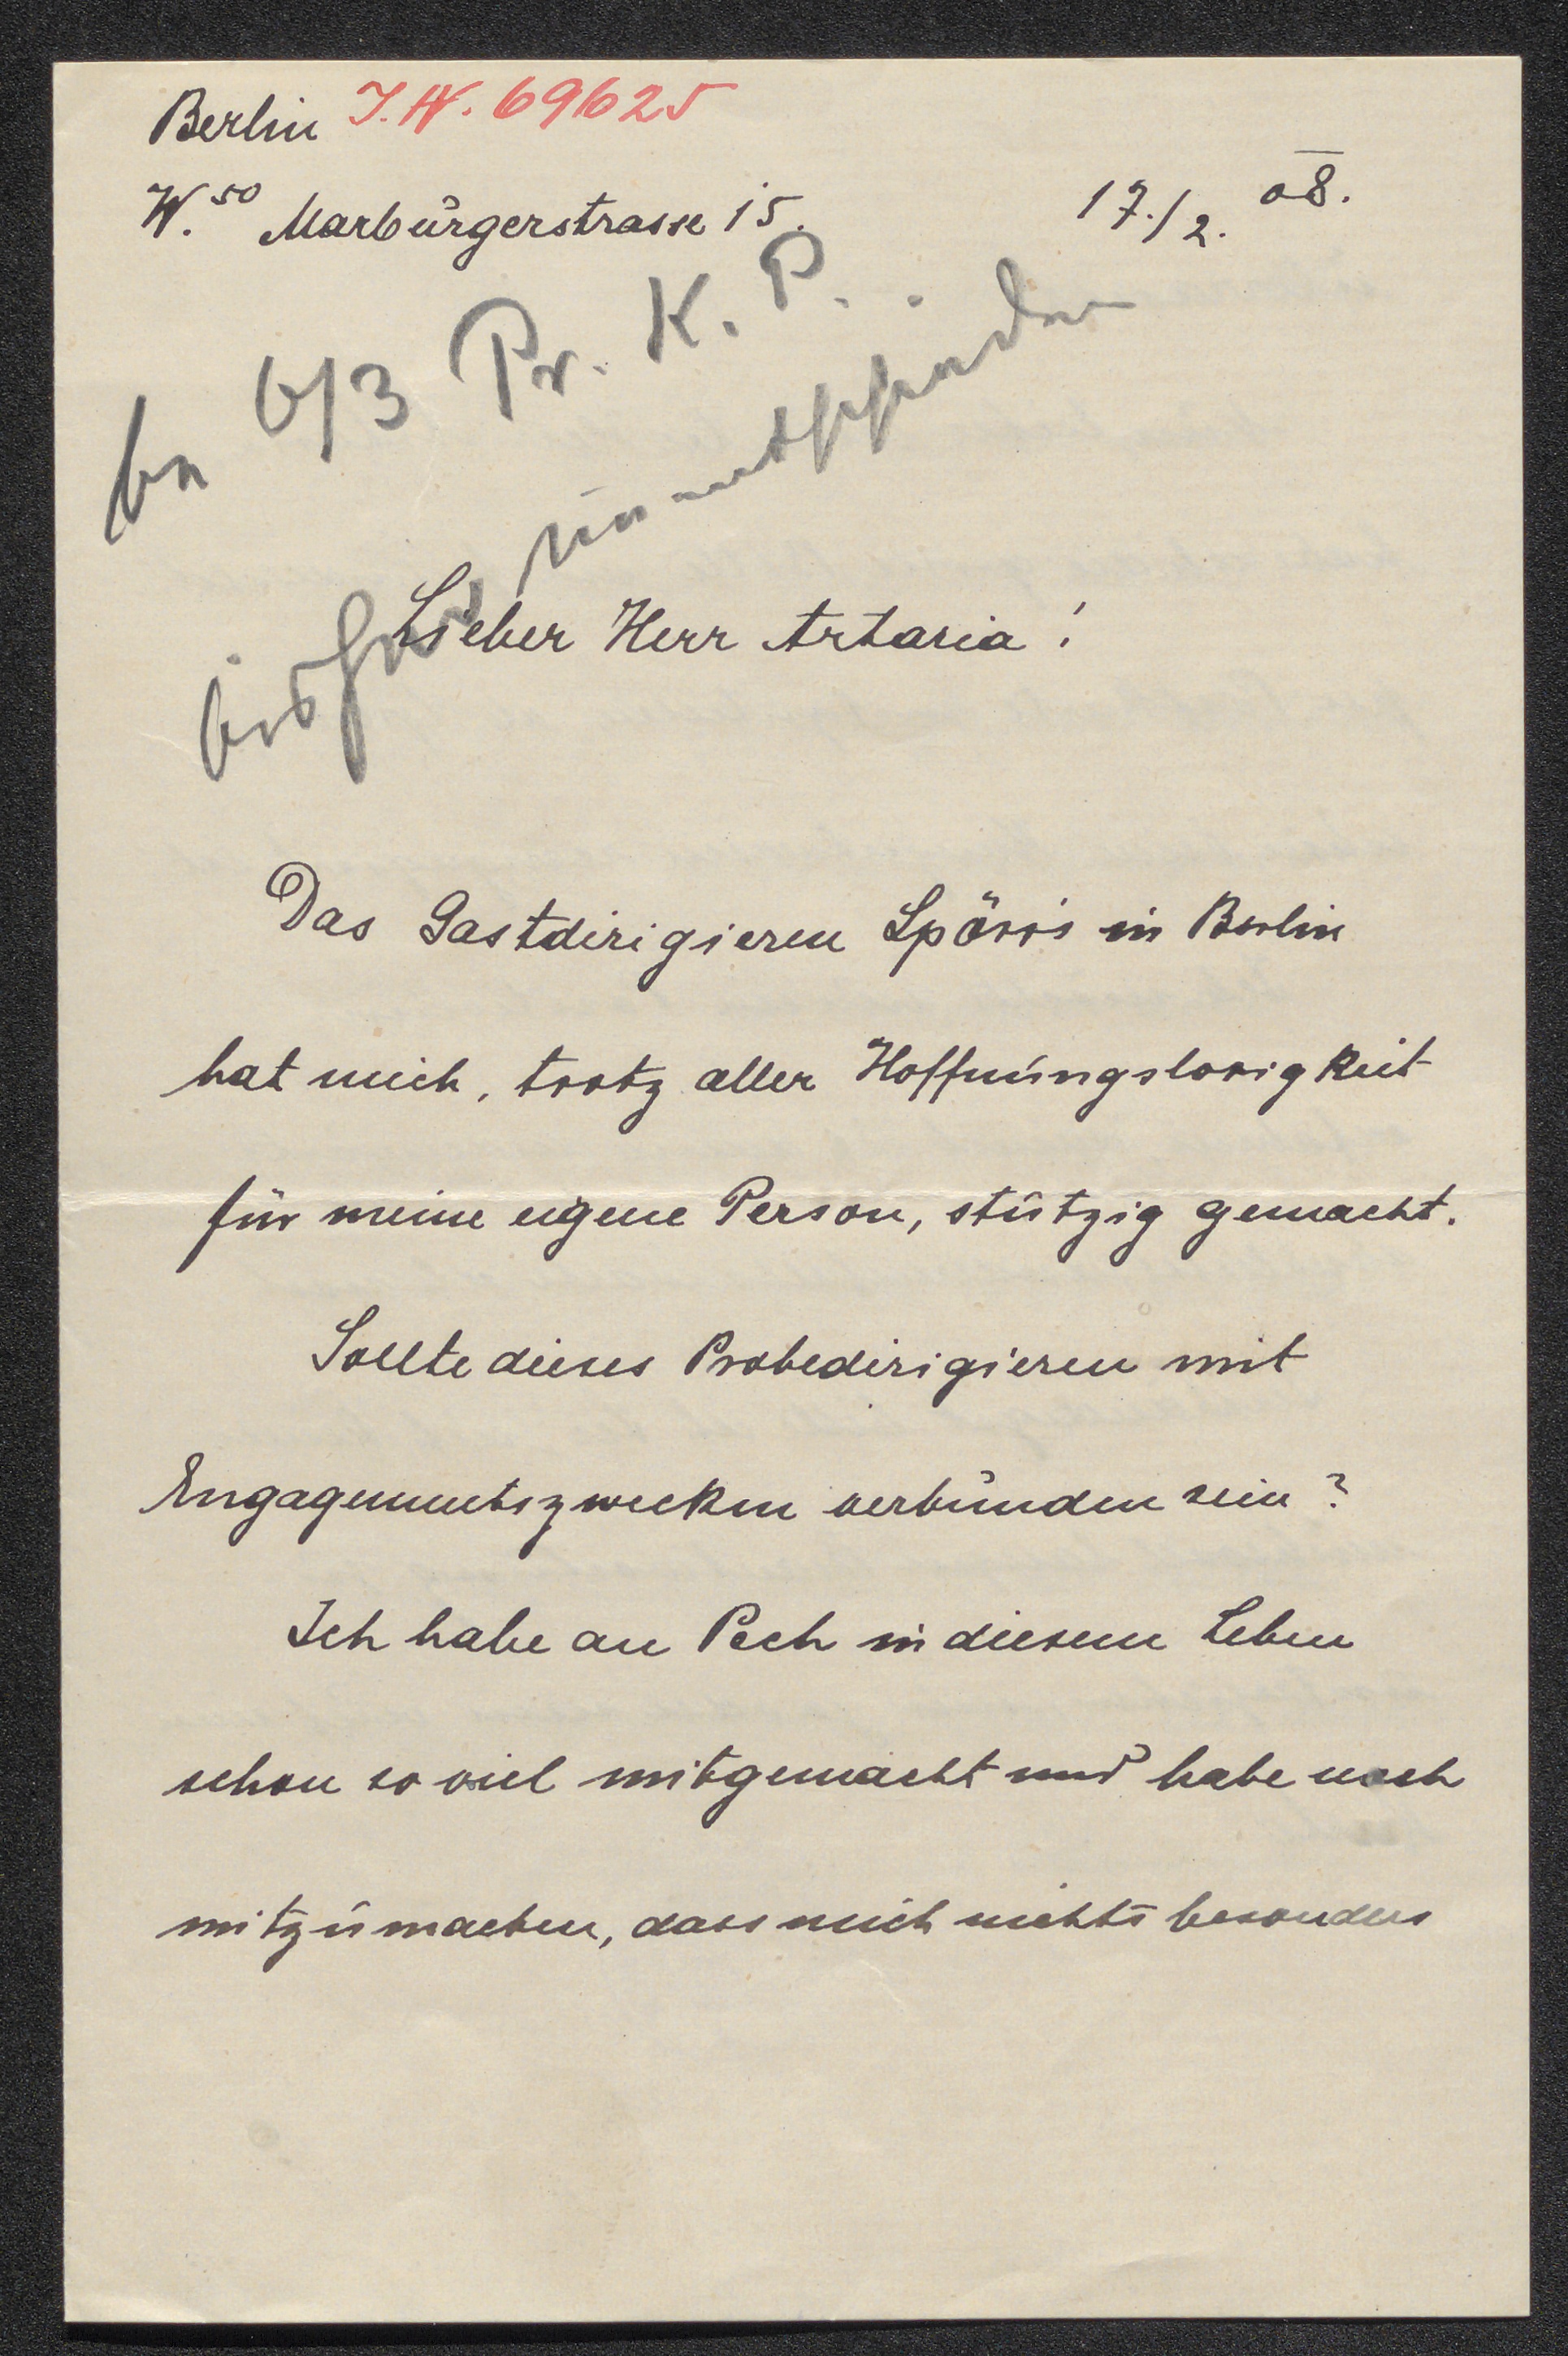 Berlin J.N. 69625
W.50 Marburgerstrasse 15. 17./2. 08.
6/3 Pr. K. P.
Lieber Herr Artaria!
Das Gastdirigieren Spörr's in Berlin
hat mich, trotz aller Hoffnungslosigkeit
für meine eigene Person, stutzig gemacht.
Sollte dieses Probedirigieren mit
Engagementszwecken verbunden sein?
Ich habe an Pech in diesem Leben
schon so viel mitgemacht und habe noch
mitzumachen, dass mich nichts besonders